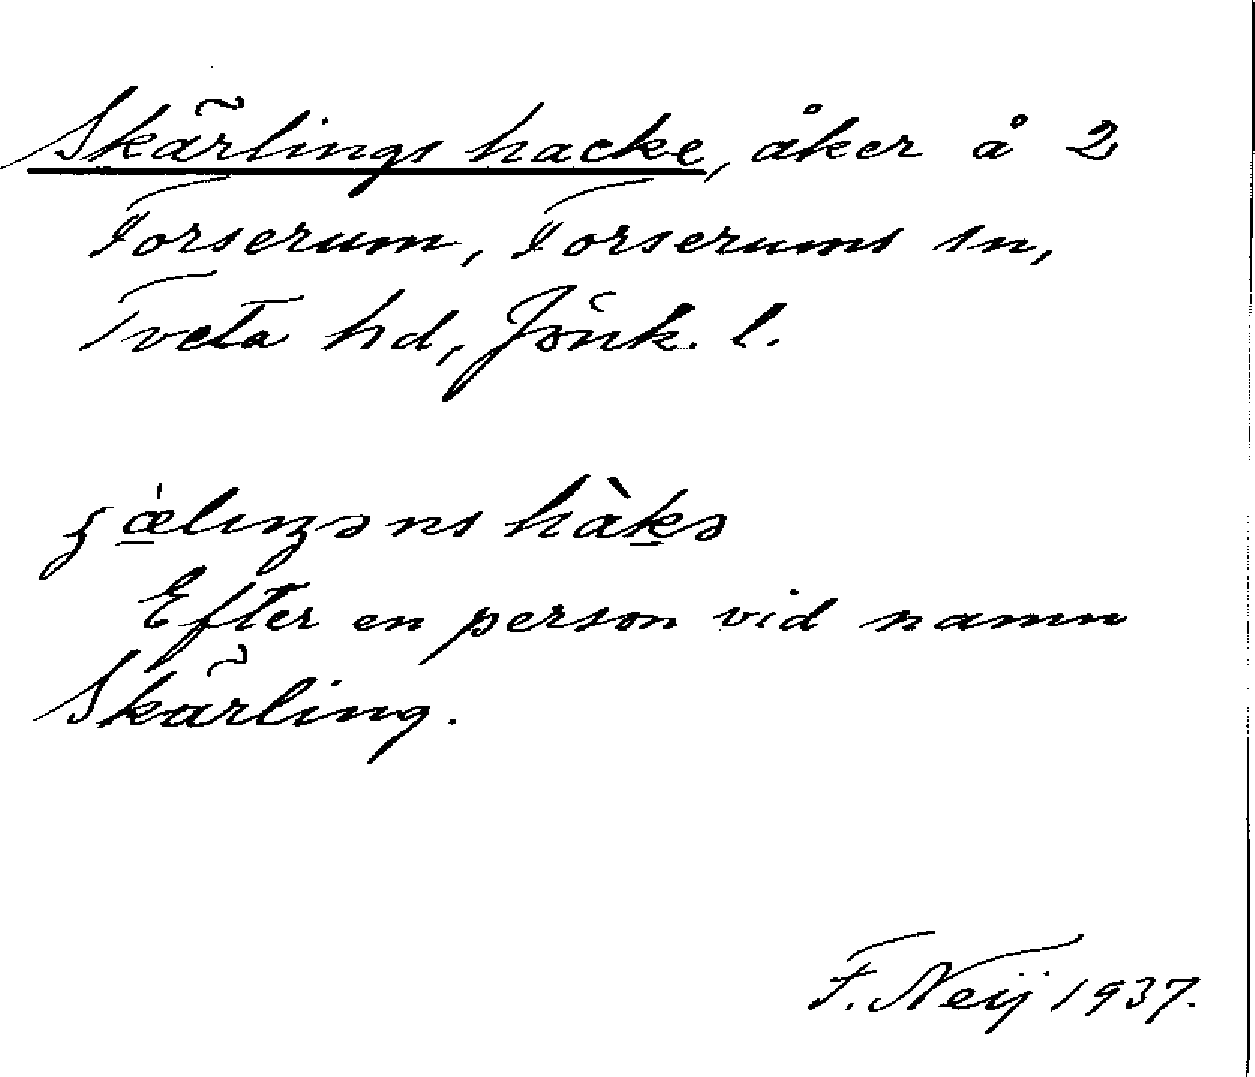 Skärlings hacke, åker å 2
Forserum, Forserums sn,
Tveta hd, Jönk. l.
hàkə
Efter en person vid namn
Skärling.
F. Neij 1937.